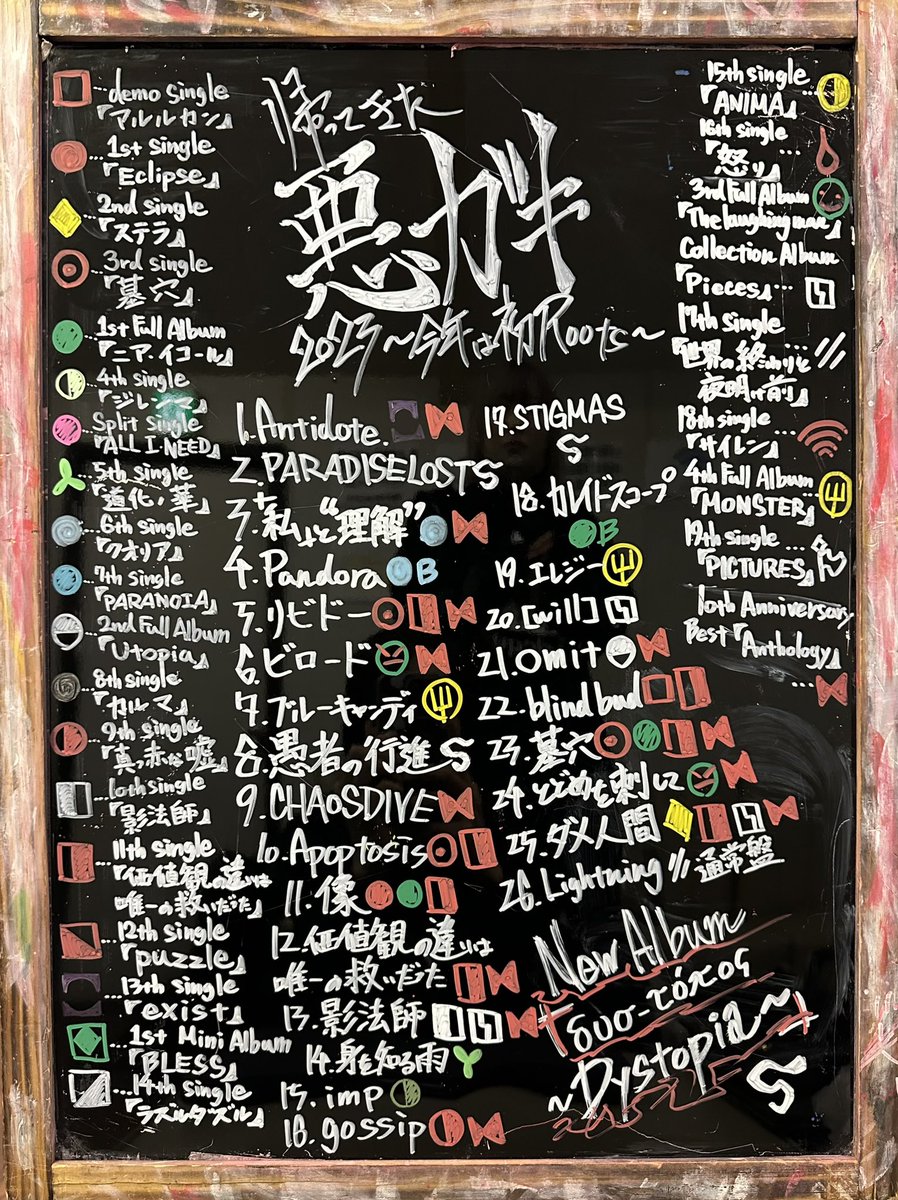 demo single
『マルルカン』
1st Single
『Eclipse』
2nd single
『ステラ』
3rd single
『墓穴』
1st Full Album
『ニア・イコール』
4th single
Split Single
『ALL I NEED』
5th single
『道化ノ華』
6th single
『クオリア』
7th single
『PARANOIA』
2nd Full Album
『Utopia』
8th single
『カルマ』
9th single
『真っ赤な嘘』
10th single
『影法師』
11th single
『価値観の違いは
唯一の救いだった』
12th single
『puzzle』
13th single
『exist』
1st Mini Album
『BLESS』
14th single
『ラズルダズル』
帰ってきた
悪ガキ
2023〜今年は初Roots〜
1.Antidote.
2.PARADISELOST
3."私"と"理解"
4.Pandora B
5.リビドー
6.ビロード
7.ブルーキャンディ
8.愚者の行進
9.CHAOSDIVE
10.Apoptosis
11.像
12.価値観の違いは
唯一の救いだった
13.影法師
14.身を知る雨
15.imp
16.gossip
17.STIGMAS
18.カレイドスコープ
B
19.エレジー
20.[will]
21.omit
22.blind bud
23.墓穴
24.とどめを刺して
25.ダメ人間
26.Lightning 通常盤
New Album
『δυσ-τόπος
〜Dystopia〜』
15th single
『ANIMA』
16th single
『怒り』
3rd Full Album
『The laughing man』
Collection Album
『Pieces』
17th single
『世界の終わりと
夜明け前』
18th single
『サイレン』
4th Full Album
『MONSTER』
19th single
『PICTURES』
10th Anniversary
Best『Anthology』